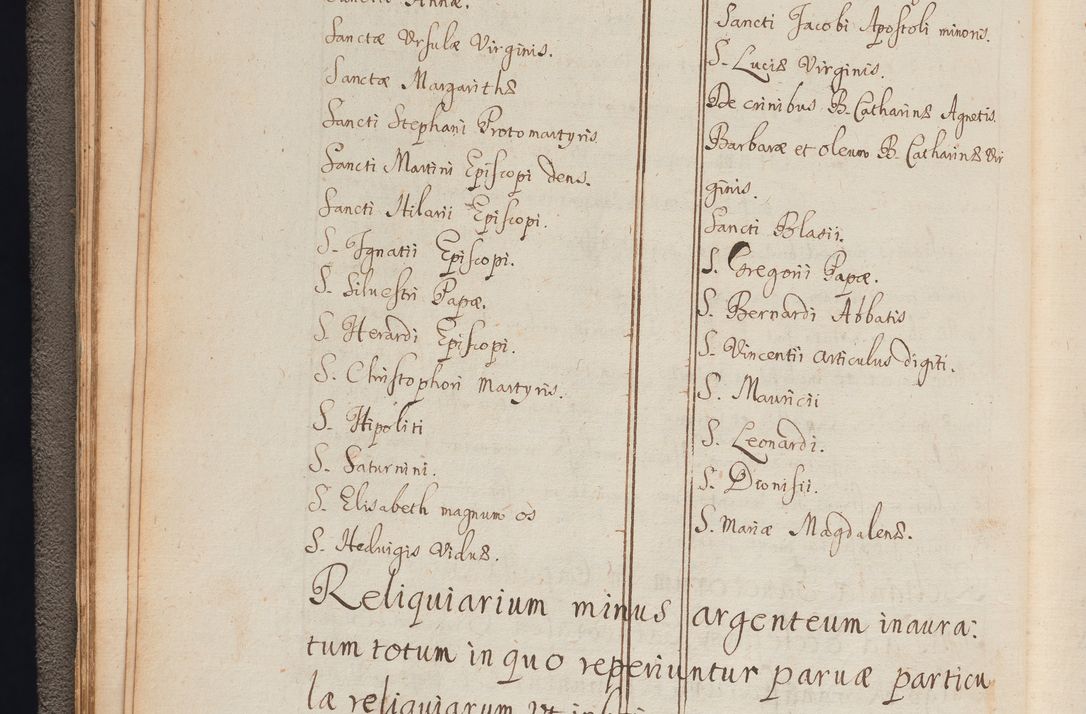 Sanctæ Annæ.
Sanctæ Vrsulæ Virginis.
Sanctæ Margarithę
Sancti Stephani Protomartyris
Sancti Martini Episcopi dens.
Sancti Hilarii Episcopi.
S. Ignatii Episcopi.
S. Siluestri Papæ.
S. Herardi Episcopi.
S. Christophori Martyris.
S. Hipoliti
S. Saturnini.
S. Elisabeth magnum os
S. Hedvigis Viduę.
Sancti Jacobi Apostoli minoris.
S. Lucię Virginis.
De crinibus B. Catharinę Agnetis.
Barbaræ et oleum B. Catharinę Vir
ginis.
Sancti Blasii.
S. Gregorii Papæ.
S. Bernardi Abbatis
S. Vincentii articulus digiti.
S. Mauricii
S. Leonardi.
S. Dionisii.
S. Mariæ Magdalenę.
Reliquiarium minus argenteum inaura:
tum totum in quo reperiuntur paruæ particu
la reliquiarum vt